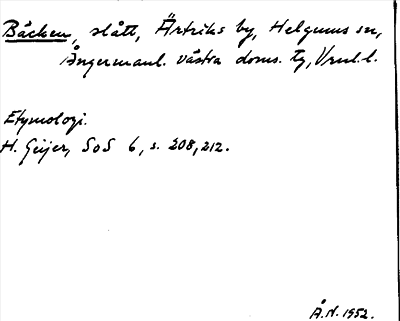 Bäcken, slått, Ärtriks by, Helgums sn,
Ångermanl. västra doms. tg, Vrnl.l.
Etymologi.
H. Geijer, SoS 6, s. 208, 212.
Å.N. 1952.